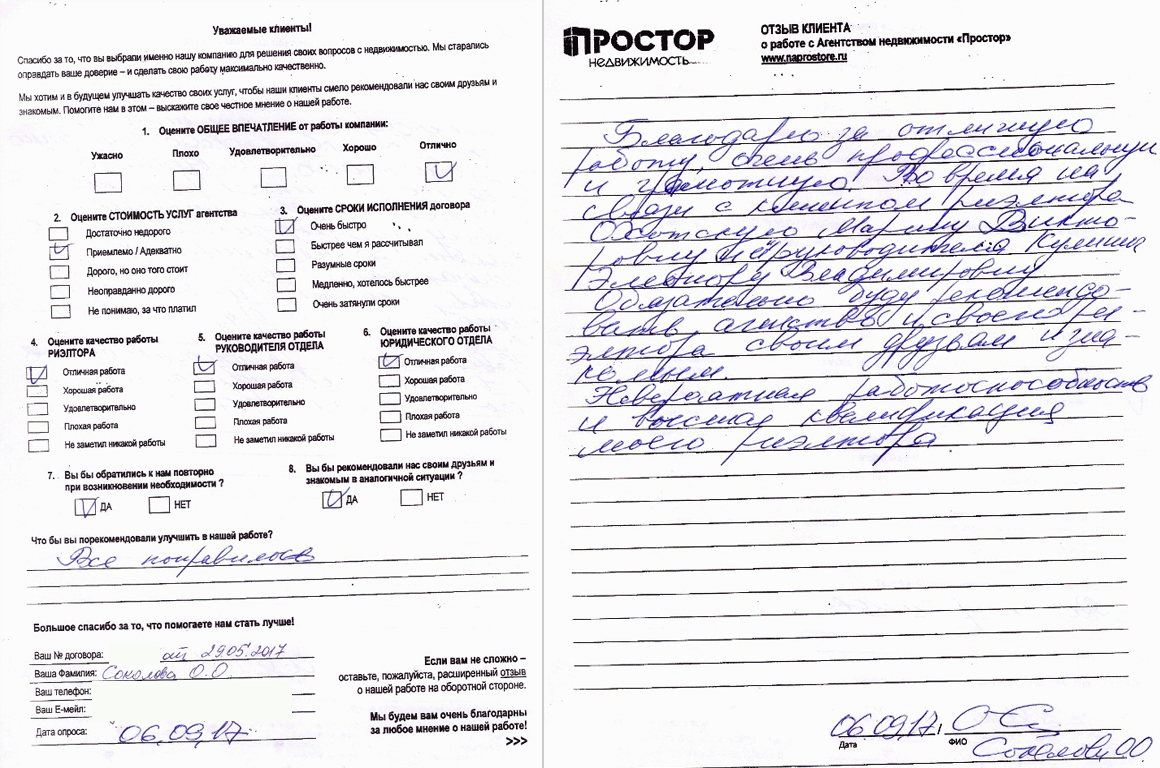 Уважаемые клиенты!
Спасибо за то, что вы выбрали именно нашу компанию для решения своих вопросов с недвижимостью. Мы старались
оправдать ваше доверие – и сделать свою работу максимально качественно.
Мы хотим и в будущем улучшать качество своих услуг, чтобы наши клиенты смело рекомендовали нас своим друзьям и
знакомым. Помогите нам в этом – выскажите свое честное мнение о нашей работе.
1. Оцените ОБЩЕЕ ВПЕЧАТЛЕНИЕ от работы компании:
Ужасно Плохо Удовлетворительно Хорошо Отлично
2. Оцените СТОИМОСТЬ УСЛУГ агентства
Достаточно недорого
Приемлемо / Адекватно
Дорого, но оно того стоит
Неоправданно дорого
Не понимаю, за что платил
3. Оцените СРОКИ ИСПОЛНЕНИЯ договора
Очень быстро
Быстрее чем я рассчитывал
Разумные сроки
Медленно, хотелось быстрее
Очень затянули сроки
4. Оцените качество работы
РИЭЛТОРА
Отличная работа
Хорошая работа
Удовлетворительно
Плохая работа
Не заметил никакой работы
5. Оцените качество работы
РУКОВОДИТЕЛЯ ОТДЕЛА
Отличная работа
Хорошая работа
Удовлетворительно
Плохая работа
Не заметил никакой работы
6. Оцените качество работы
ЮРИДИЧЕСКОГО ОТДЕЛА
Отличная работа
Хорошая работа
Удовлетворительно
Плохая работа
Не заметил никакой работы
7. Вы бы обратились к нам повторно
при возникновении необходимости ?
ДА НЕТ
8. Вы бы рекомендовали нас своим друзьям и
знакомым в аналогичной ситуации ?
ДА НЕТ
Что бы вы порекомендовали улучшить в нашей работе?
Все понравилось
Большое спасибо за то, что помогаете нам стать лучше!
Ваш № договора: от 29.05.2017
Ваша Фамилия: Соколова О.О.
Ваш телефон:
Ваш Е-мейл:
Дата опроса: 06.09.17
Если вам не сложно –
оставьте, пожалуйста, расширенный отзыв
о нашей работе на оборотной стороне.
Мы будем вам очень благодарны
за любое мнение о нашей работе!
>>>
ПРОСТОР
НЕДВИЖИМОСТЬ
ОТЗЫВ КЛИЕНТА
о работе с Агентством недвижимости «Простор»
www.naprostore.ru
Благодарю за отличную
работу, очень профессиональную
и грамотную. Во время на
связи с клиентом риэлтора
Охотскую Марину Викто-
ровну и руководителя
Элеонору Владимировну
Обязательно буду рекомендо-
вать агенство и своего ри-
элтора своим друзьям и зна-
комым.
Невероятная работоспособность
и высокая квалификация
моего риэлтора.
06.09.17,
Дата ФИО
Соколова О.О.